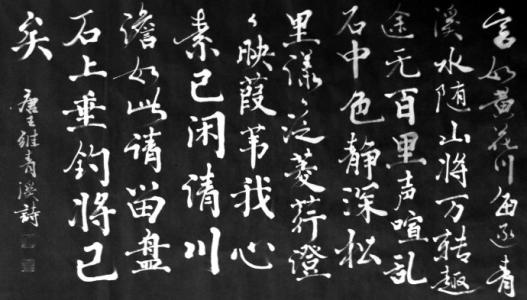 言如黄花川每逐青
溪水随山将万转趣
途无百里声喧乱
石中色静深松
里漾々泛菱荇澄
々映葭苇我心
素已闲清川
澹如此请留盘
石上垂钓将已
矣
唐王維青溪詩